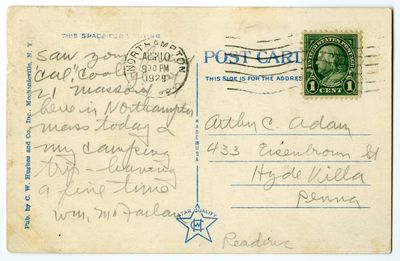 THIS SPACE FOR WRITING
Saw your
Cal "Cooli
21 mass of
here in Northampton
mass today 2
my camping
trip - having
a fine time
Wm. McFarlan
NORTHAMPTON
AUG 10
930 PM
1929
POST CARD
THIS SIDE IS FOR THE ADDRESS
UNITED STATES POSTAGE
1 CENT 1
Arthy C. Adam
433 Eisenbrown St
Hyde Villa
Penna
Reading
Pub. by C. W. Hughes and Co., Inc., Mechanicville, N. Y.
MADE IN USA
STAR QUALITY